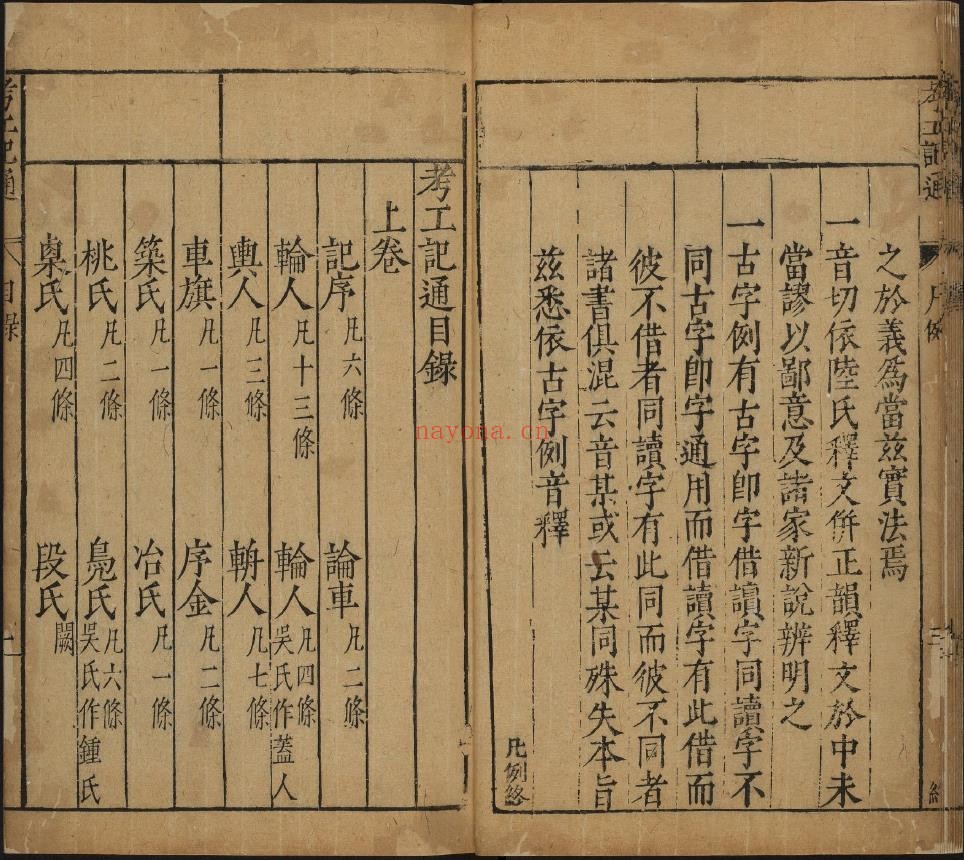 之於義爲當茲實法焉
一音切依陸氏釋文併正韻釋文於中未
當謬以鄙意及諸家新說辨明之
一古字例有古字卽字借讀字同讀字不
同古字卽字通用而借讀字有此借而
彼不借者同讀字有此同而彼不同者
諸書俱混云音某或云某同殊失本旨
茲悉依古字例音釋
凡例終
考工記通目錄
上卷
記序 凡六條 論車 凡二條
輪人 凡十三條 輪人 凡四條 吳氏作蓋人
輿人 凡三條 輈人 凡七條
車旗 凡一條 序金 凡二條
築氏 凡一條 冶氏 凡一條
桃氏 凡二條 鳧氏 凡六條 吳氏作鍾氏
㮚氏 凡四條 段氏 闕
考工記通
目錄
考工記通
凡例
三
nayona.cn